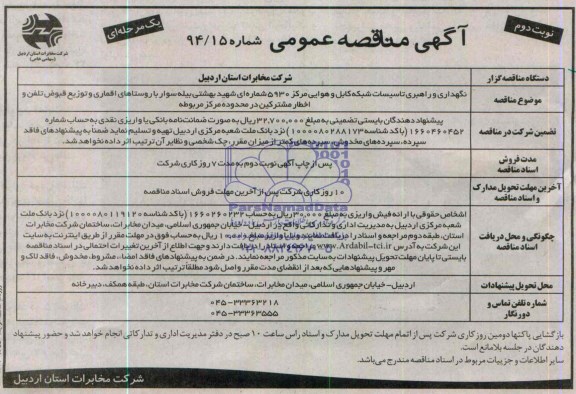 نوبت دوم
آگهی مناقصه عمومی شماره ۹۴/۱۵
یک مرحله‌ای
شرکت مخابرات استان اردبیل
(سهامی خاص)
دستگاه مناقصه گزار
شرکت مخابرات استان اردبیل
موضوع مناقصه
نگهداری و راهبری تاسیسات شبکه کابل و هوایی مرکز ۵۹۳۰ شماره‌ای شهید بهشتی بیله سوار با روستاهای اقماری و توزیع قبوض تلفن و
اخطار مشترکین در محدوده مرکز مربوطه
تضمین شرکت در مناقصه
پیشنهاد دهندگان بایستی تضمینی به مبلغ ۳۲,۷۰۰,۰۰۰ ریال به صورت ضمانت نامه بانکی یا واریزی نقدی به حساب شماره
۱۶۶۰۴۶۰۴۵۲ (با کد شناسه ۱۰۰۰۰۸۰۲۸۸۱۷۳) نزد بانک ملت شعبه مرکزی اردبیل تهیه و تسلیم نماید ضمنا به پیشنهادهای فاقد
سپرده، سپرده‌های مخدوش، سپرده‌های کمتر از میزان مقرر، چک شخصی و نظایر آن ترتیب اثر داده نخواهد شد.
مدت فروش
اسناد مناقصه
پس از چاپ آگهی نوبت دوم به مدت ۷ روز کاری شرکت
آخرین مهلت تحویل مدارک
و اسناد مناقصه
۱۰ روز کاری شرکت پس از آخرین مهلت فروش اسناد مناقصه
چگونگی و محل دریافت
اسناد مناقصه
اشخاص حقوقی با ارائه فیش واریزی به مبلغ ۳۰۰,۰۰۰ ریال به حساب ۱۶۶۰۲۶۰۲۳۲ (با کد شناسه ۱۰۰۰۰۸۰۱۱۹۱۲۰) نزد بانک ملت
شعبه مرکزی اردبیل به مدیریت اداری و تدارکاتی واقع در اردبیل - خیابان جمهوری اسلامی، میدان مخابرات، ساختمان شرکت مخابرات
استان، طبقه دوم مراجعه و اسناد را دریافت نمایند و یا واریز مبلغ ریال به حساب فوق در مهلت مقرر از طریق اینترنت به سایت
این شرکت به آدرس www.Ardabil-tci.ir مراجعه و اسناد را دریافت دارند و جهت اطلاع از آخرین تغییرات احتمالی در اسناد مناقصه
بایستی تا پایان مهلت تحویل پیشنهادات به سایت مذکور مراجعه نمایند. در ضمن به پیشنهادهای فاقد امضاء، مشروط، مخدوش، فاقد لاک و
مهر و پیشنهادهایی که بعد از انقضای مدت مقرر واصل شود مطلقاً ترتیب اثر داده نخواهد شد.
محل تحویل پیشنهادات
اردبیل - خیابان جمهوری اسلامی، میدان مخابرات، ساختمان شرکت مخابرات استان، طبقه همکف، دبیرخانه
شماره تلفن تماس و
دورنگار
۰۴۵-۳۳۳۶۳۲۱۸
۰۴۵-۳۳۳۶۳۵۵۵
بازگشایی پاکتها دومین روز کاری شرکت پس از اتمام مهلت تحویل مدارک و اسناد راس ساعت ۱۰ صبح در دفتر مدیریت اداری و تدارکاتی انجام خواهد شد و حضور پیشنهاد
دهندگان در جلسه بلامانع است.
سایر اطلاعات و جزییات مربوط در اسناد مناقصه مندرج می‌باشد.
شرکت مخابرات استان اردبیل
ParsNamadData